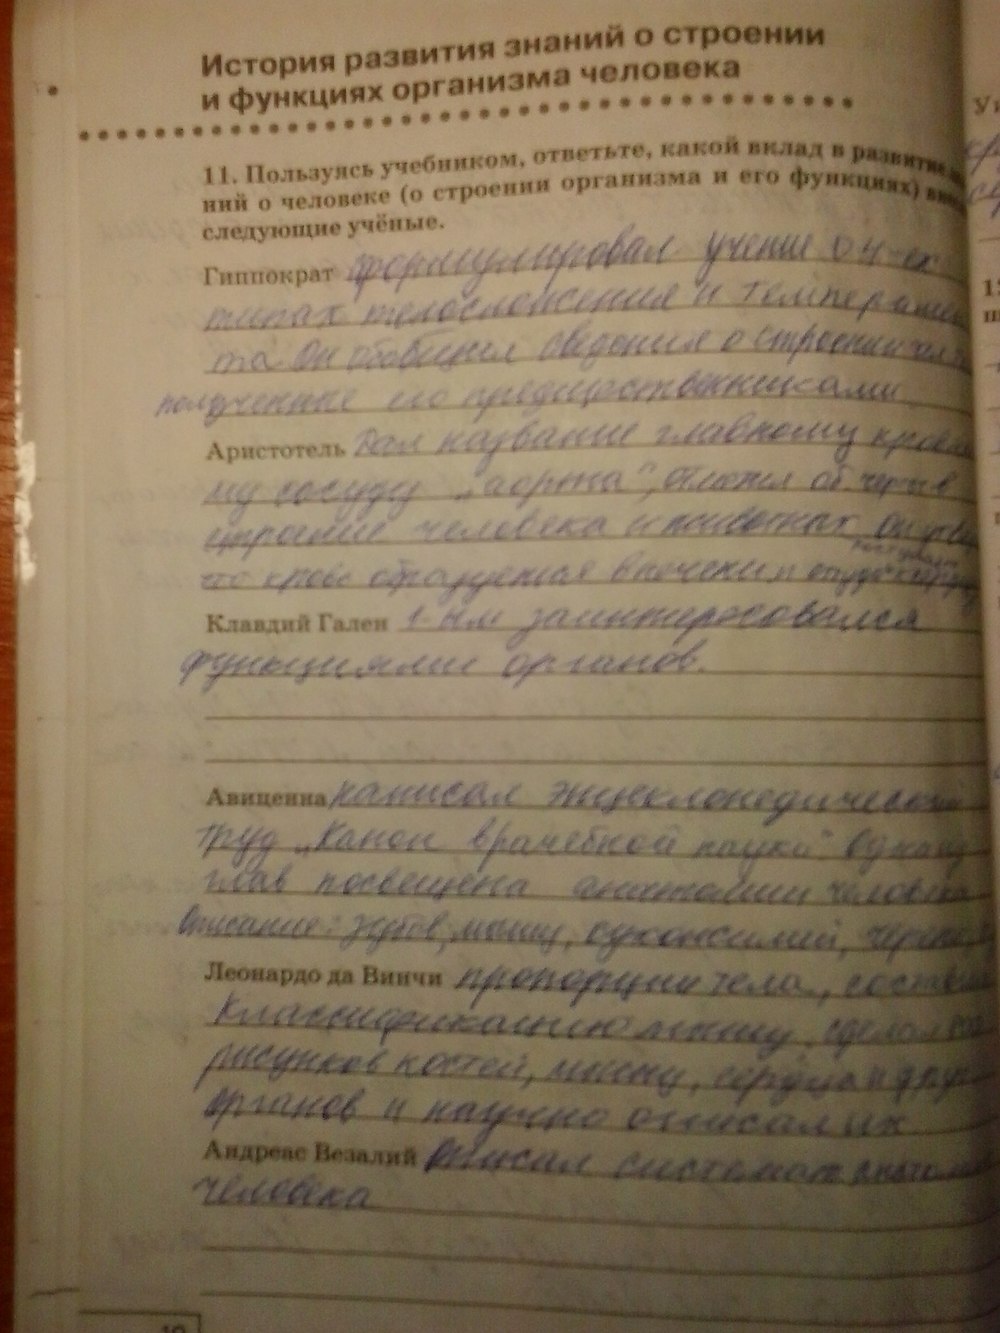 История развития знаний о строении
и функциях организма человека
11. Пользуясь учебником, ответьте, какой вклад в развитие
ний о человеке (о строении организма и его функциях)
следующие учёные.
Гиппократ формулировал учение о 4-ех
типах телосложения и темперамен
та Он обобщил сведения о строении
полученные его предшественниками
Аристотель Дал название главному
му сосуду „аорта",
строение человека и животных
что кровь образуется в печени и
Клавдий Гален 1-ым заинтересовался
функциями органов.
Авиценна написал энциклопедический
труд „Канон врачебной науки".
глав посвещена анатомии человека
Описание: зубов, мышц, сухожилий,
Леонардо да Винчи пропорции тела,
Классификацию мышц, сделал
рисунков костей, мышц, сердца и
органов и научно описал их
Андреас Везалий описал
человека